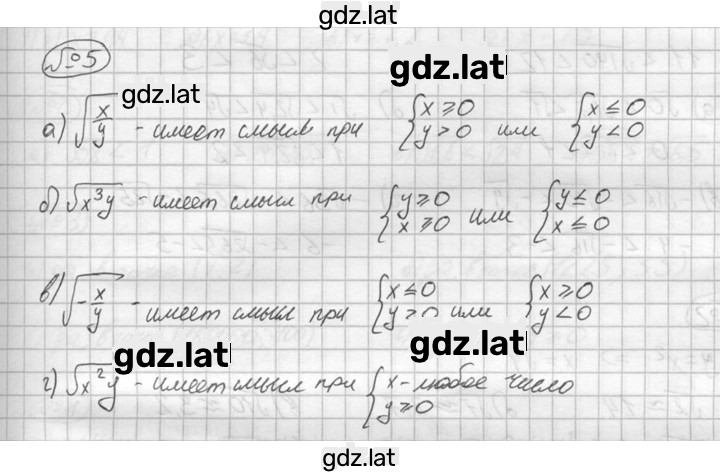 gdz.lat
№5
gdz.lat
gdz.lat
а) √(x/y) - имеет смысл при {x ⩾ 0 y > 0 или {x ≤ 0 y < 0
б) √(x³y) - имеет смысл при {y ⩾ 0 x ⩾ 0 или {y ≤ 0 x ≤ 0
в) √(-x/y) - имеет смысл при {x ≤ 0 y > 0 или {x ⩾ 0 y < 0
gdz.lat
gdz.lat
г) √(x²y) - имеет смысл при {x - любое число y ⩾ 0
gdz.lat